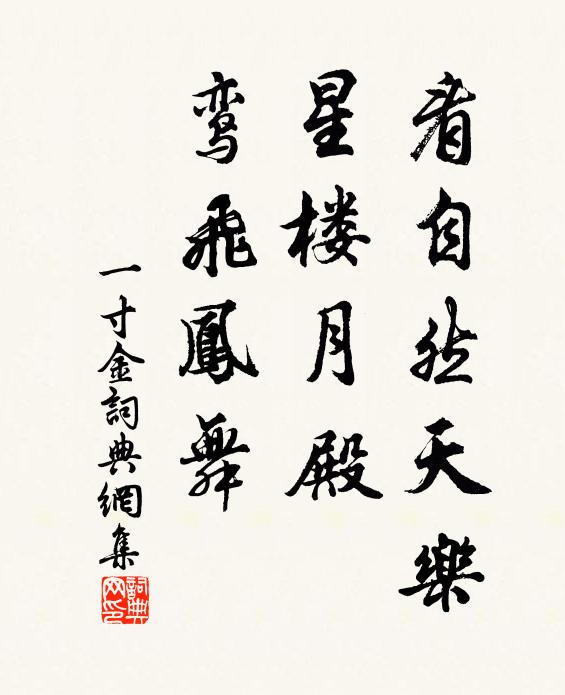 看自然天樂
星楼月殿
鸾飛鳳舞
一寸金詞典網集
詞典網印